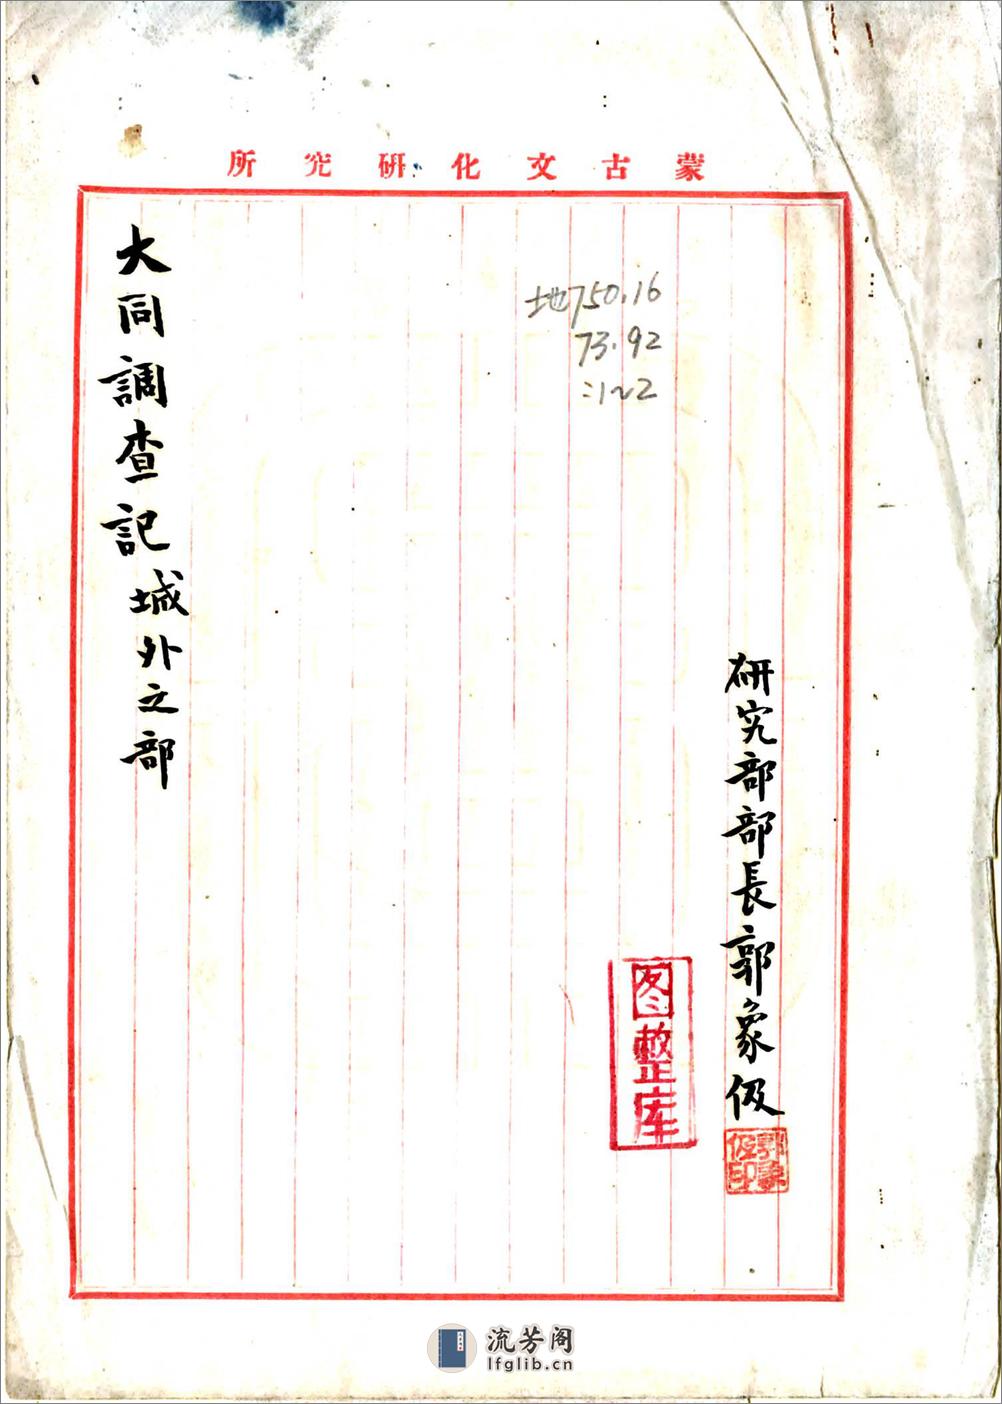 蒙古文化研究所
研究部部長郭象伋
郭象伋印
图整库
地750.16
73.92
:1~2
大同調查記城外之部
流芳阁
lfglib.cn